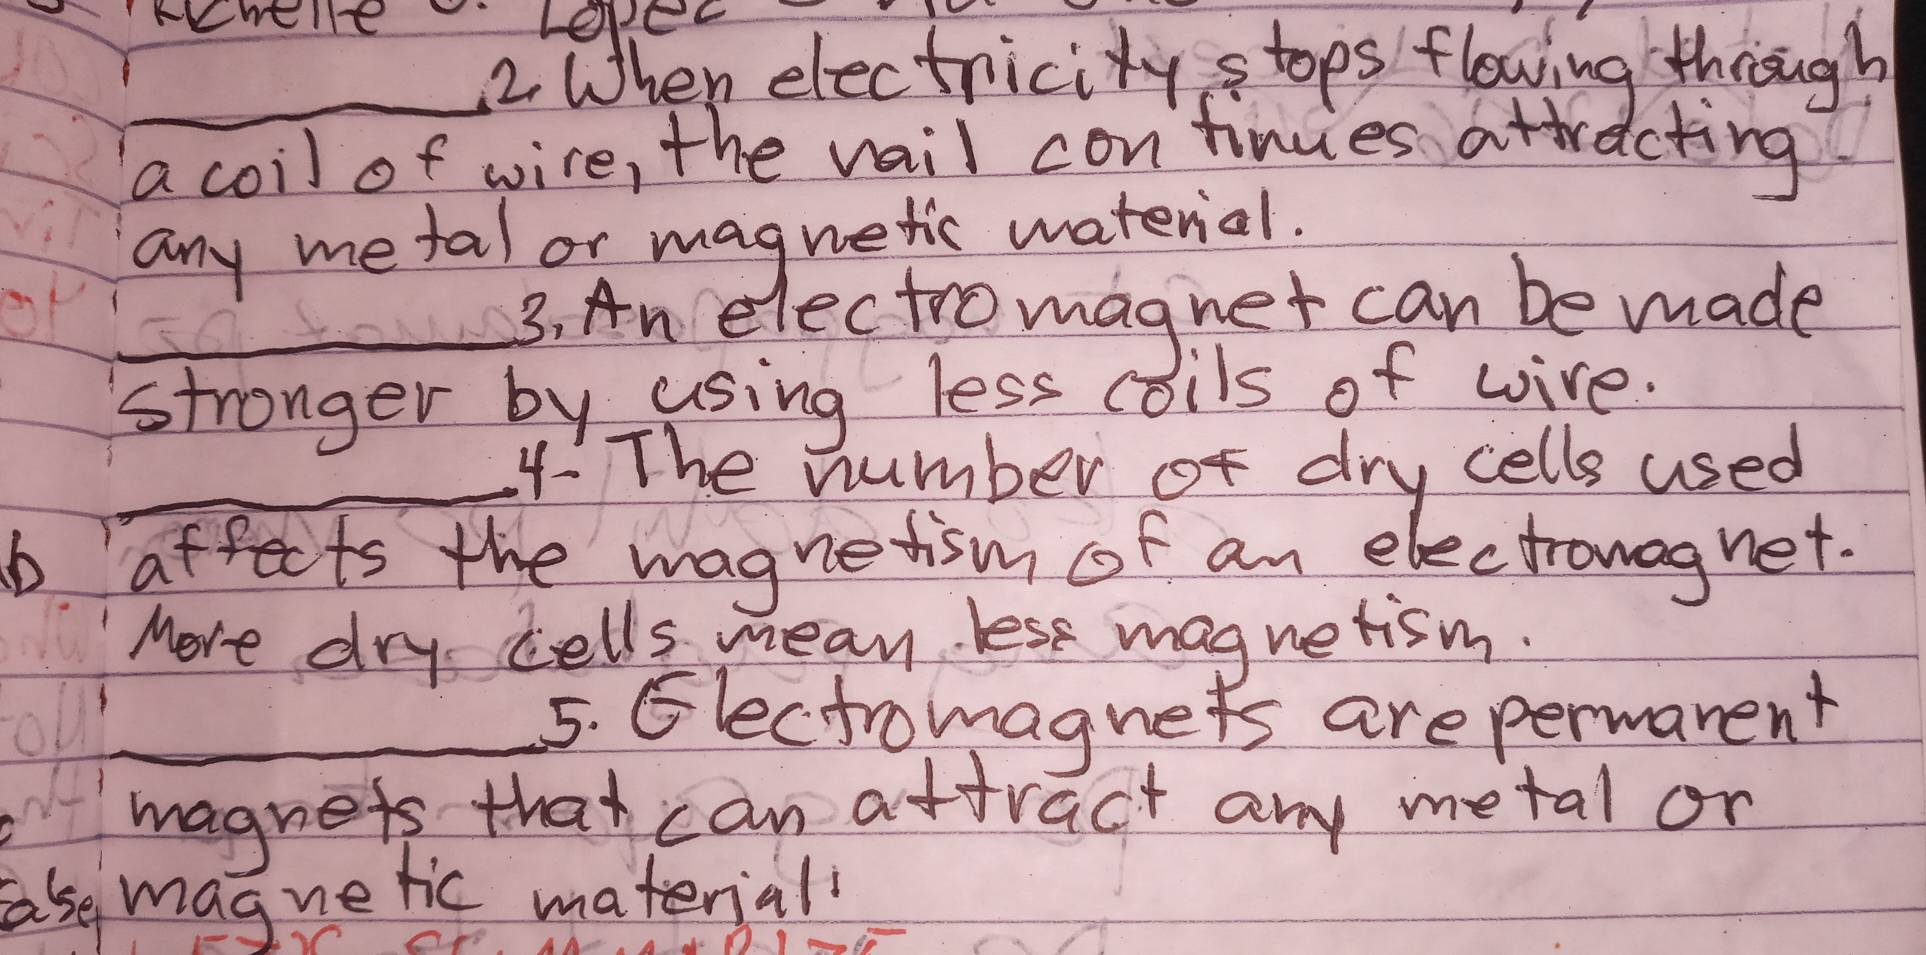 2. When electricity stops flowing through
a coil of wire, the nail con tinues attracting
any metal or magnetic material.
3. An electromagnet can be made
stronger by using less coils of wire.
4- The number of dry cells used
affects the magnetism of an electromagnet.
More dry cells mean less magnetism.
5. Electromagnets are permanent
magnets that can attract any metal or
magnetic material